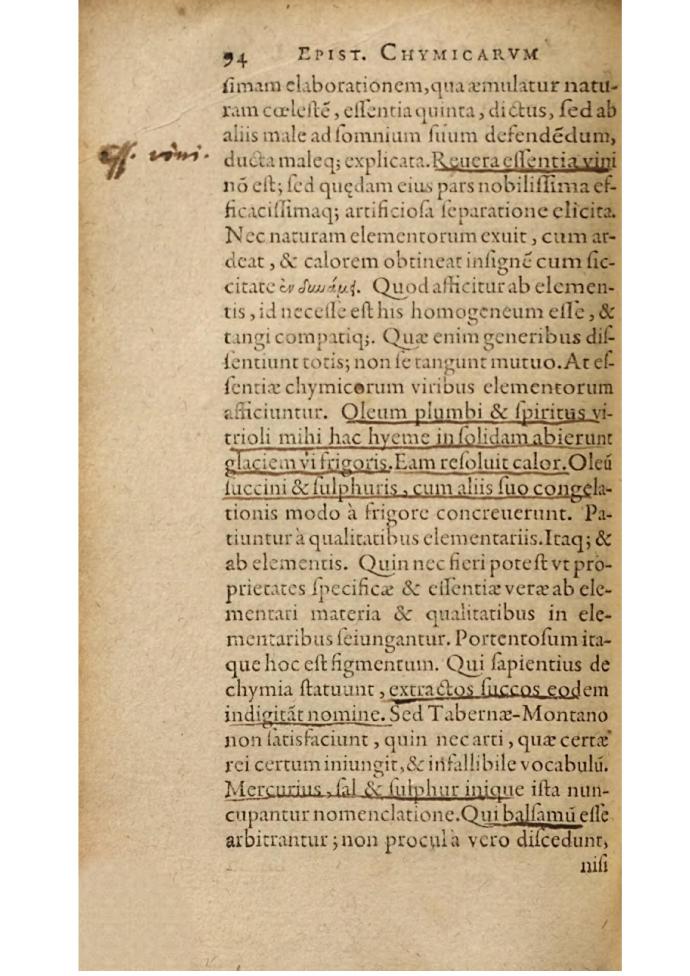 94 EPIST. CHYMICARVM
simam elaborationem, qua æmulatur natu-
ram cœlestē, essentia quinta, dictus, sed ab
aliis male ad somnium suum defendēdum,
Ess. vini.
ducta maleq; explicata. Reuera essentia vini
nō est; sed quędam eius pars nobilissima ef-
ficacissimaq; artificiosa separatione elicita.
Nec naturam elementorum exuit, cum ar-
deat, & calorem obtineat insignē cum sic-
citate ἐν δυνάμει. Quod afficitur ab elemen-
tis, id necesse est his homogeneum esse, &
tangi compatiq;. Quæ enim generibus dis-
sentiunt totis; non se tangunt mutuo. At es-
sentiæ chymicorum viribus elementorum
afficiuntur. Oleum plumbi & spiritus vi-
trioli mihi hac hyeme in solidam abierunt
glaciem vi frigoris. Eam resoluit calor. Oleū
succini & sulphuris, cum aliis suo congela-
tionis modo à frigore concreuerunt. Pa-
tiuntur à qualitatibus elementariis. Itaq; &
ab elementis. Quin nec fieri potest vt pro-
prietates specificæ & essentiæ veræ ab ele-
mentari materia & qualitatibus in ele-
mentaribus seiungantur. Portentosum ita-
que hoc est figmentum. Qui sapientius de
chymia statuunt, extractos succos eodem
indigitāt nomine. Sed Tabernæ-Montano
non satisfaciunt, quin nec arti, quæ certæ
rei certum iniungit, & infallibile vocabulū.
Mercurius, sal & sulphur inique ista nun-
cupantur nomenclatione. Qui balsamū esse
arbitrantur; non procul à vero discedunt,
nisi